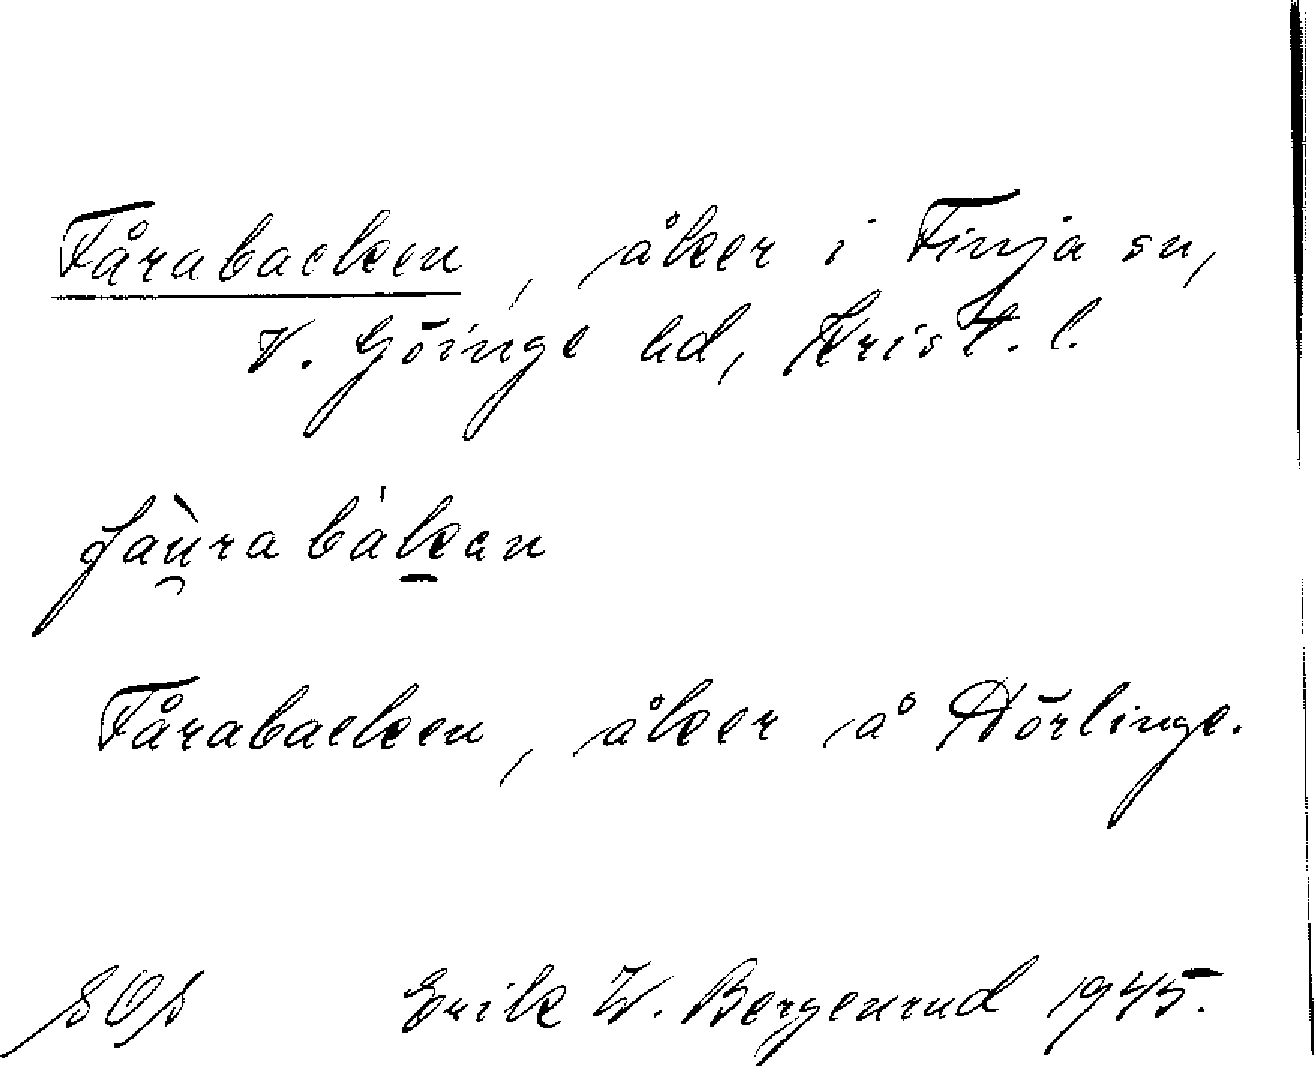 Fårabacken, åker i Finja sn,
V. Göinge hd, Krist. l.
faù̯rabák̠an
Fårabacken, åker å Dörlinge.
SOS Erik W. Bergenrud 1945.